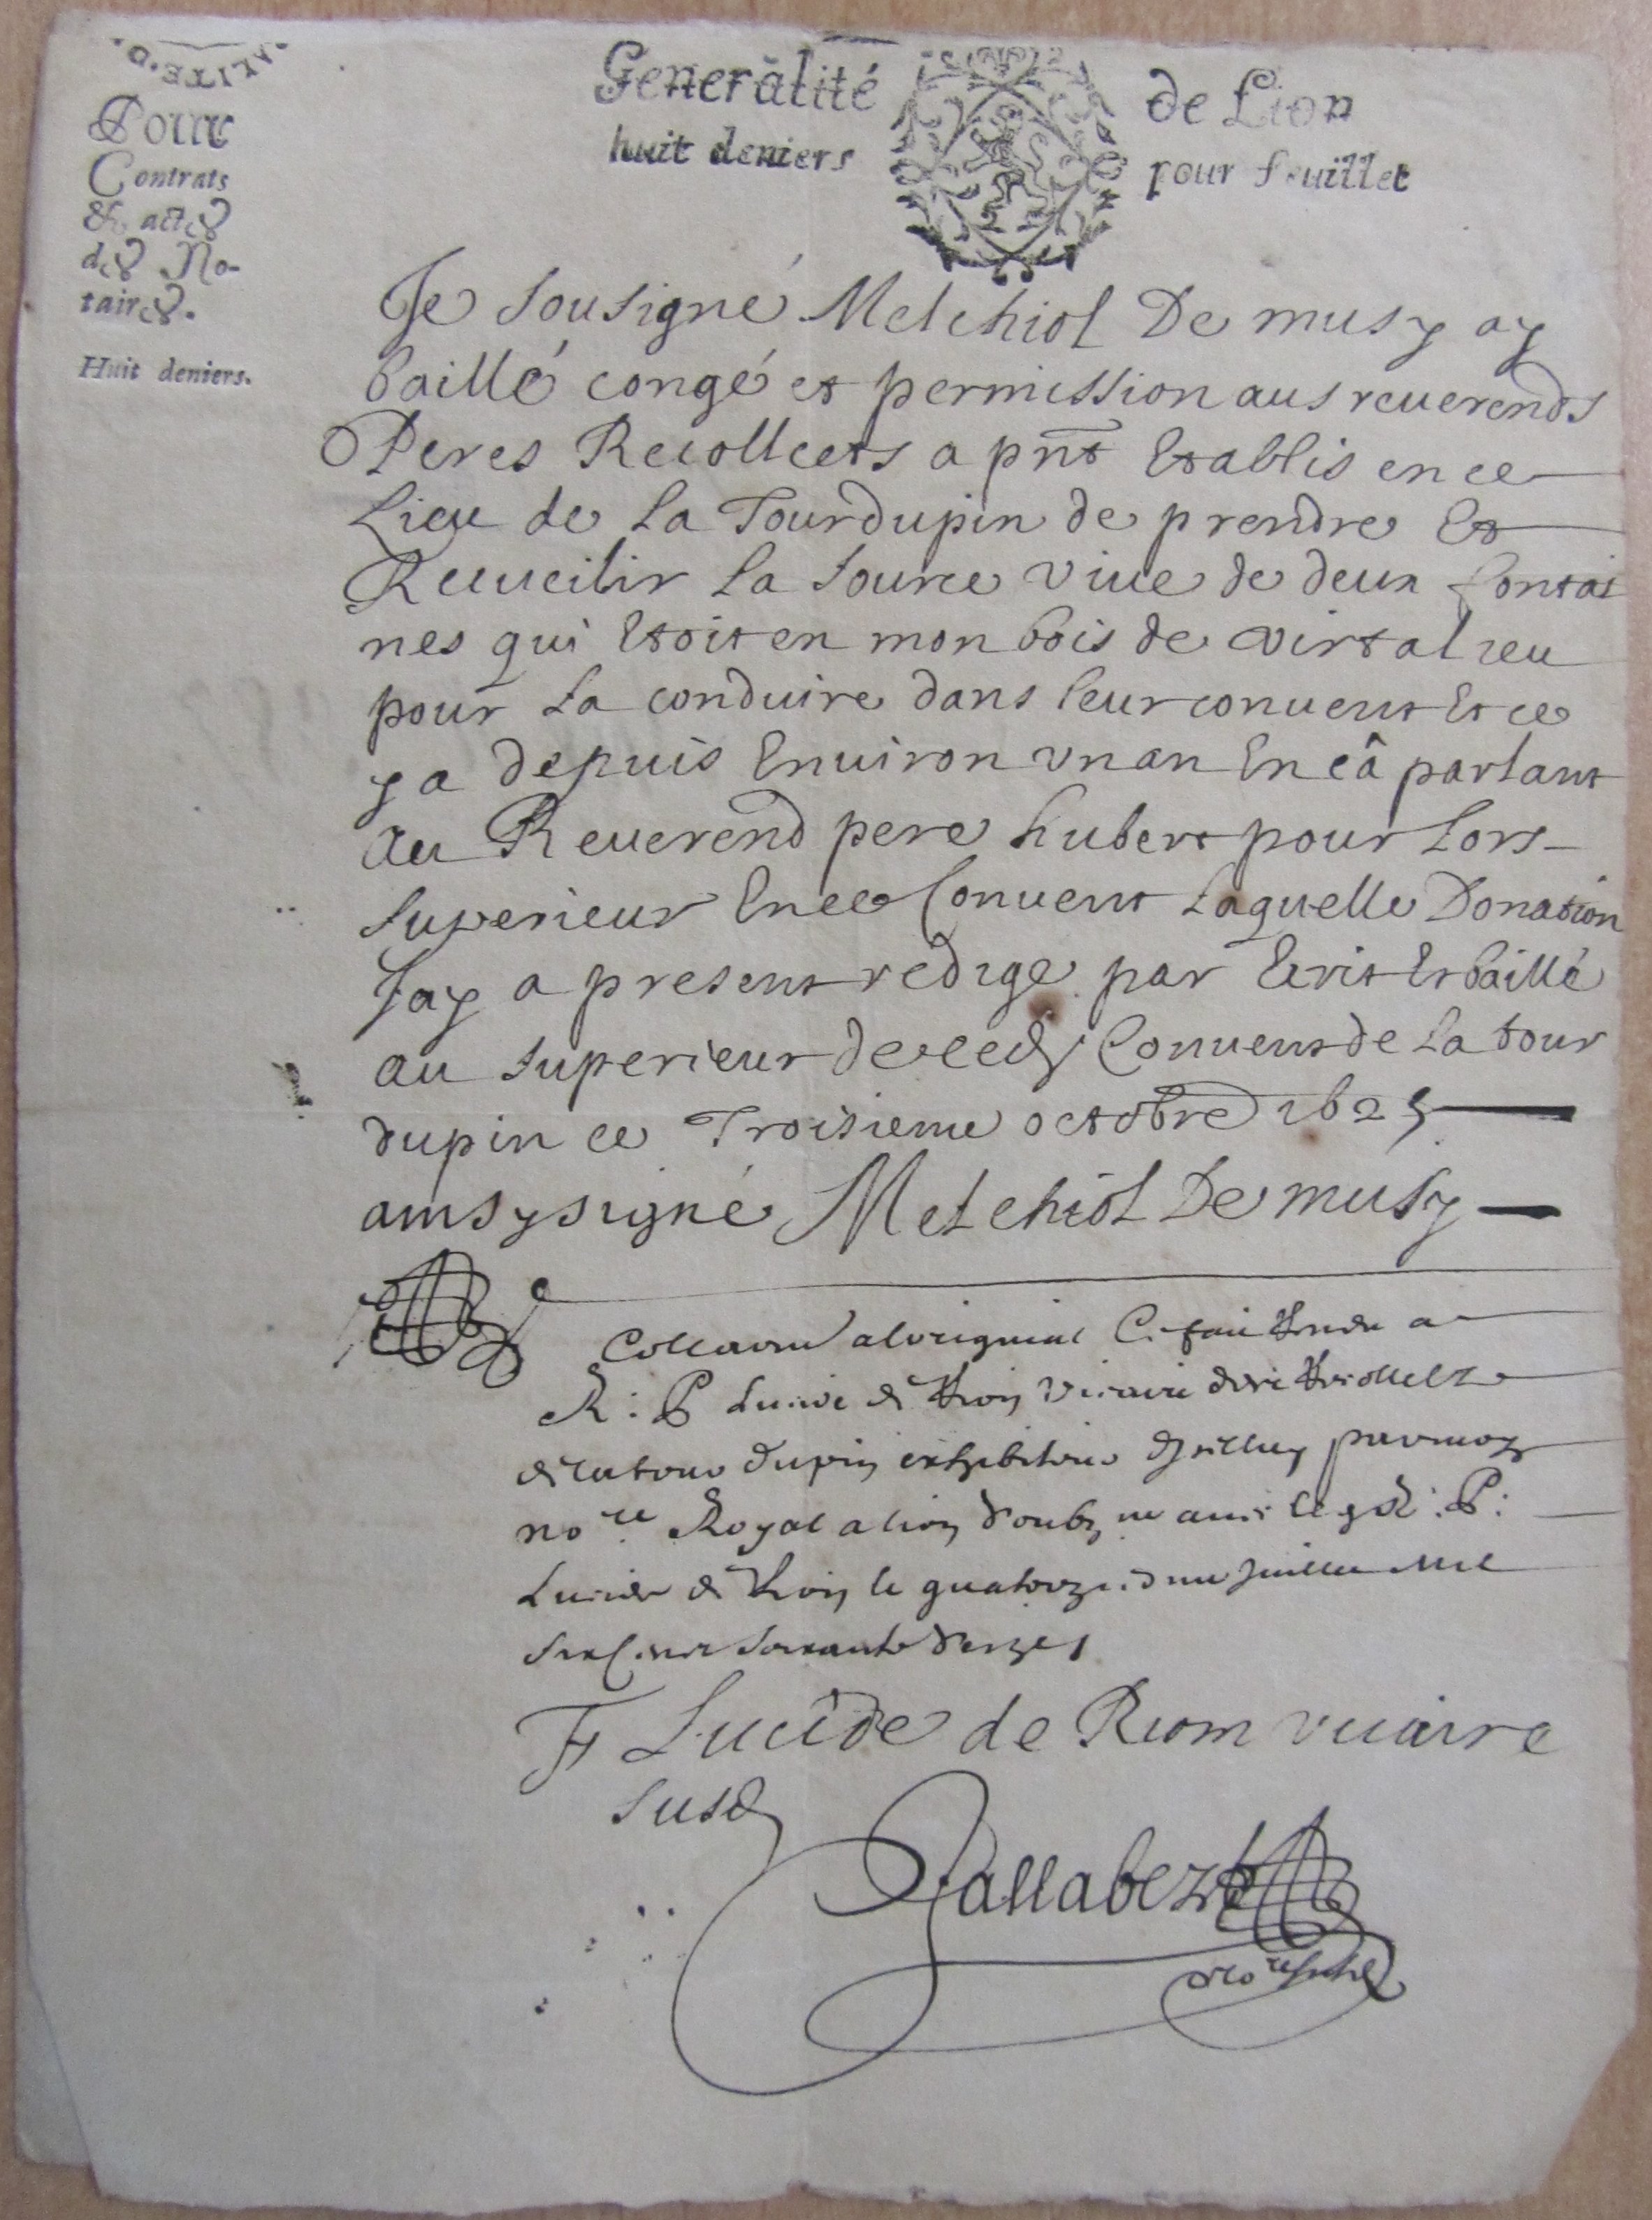 ALITE D
Pour
Contrats
& actes
des No-
taires.
Huit deniers.
Generalité de Lion
huit deniers pour feuillet
Je sousigné Melchiol De musy ay
baillé congé et permission aus reuerends
Peres Recollects a pnt Etablis en ce
Lieu de La Tourdupin de prendre Et
Recueilir La source viue de deux fontai
nes qui Etoit en mon bois de virtalieu
pour La conduire dans leur conuent Et ce
y a depuis Enuiron vn an En câ parlant
au Reuerend pere hubert pour Lors
superieur En ce Conuent Laquelle Donation
Jay a present redigé par Ecrit Et baillé
au superieur de ced Conuent de La tour
dupin ce Troisieme octobre 1625
ainsy signé Melchiol De musy
Collaonné aloriginal Ce fait Rendu a
R: P Lucide de Rion vicaire des Recollects
de la tour dupin exhibiteur parmoy
nore Royal a lion soubzne auec led R: P:
Lucide de Rion le quatorzie me Juillet mil
six cents soixante seize
F Lucide de Riom vicaire
susd
Pallabezt
nore susd